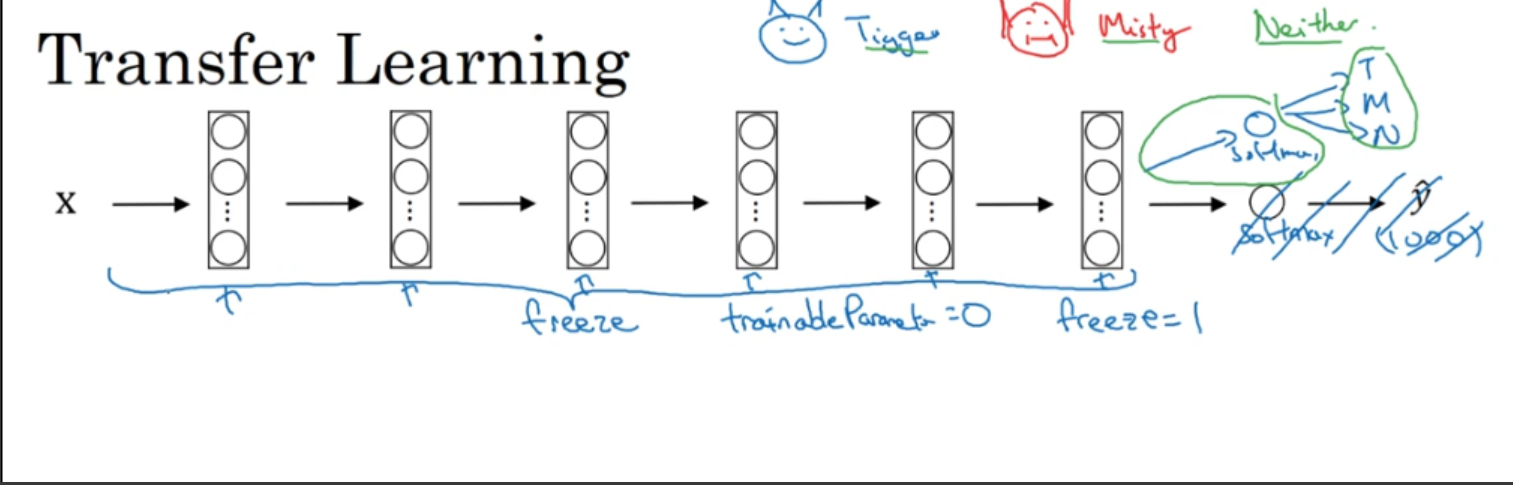 Transfer Learning
Tigger Misty Neither.
T
M
N
softmax
x
ŷ
softmax
(1000)
freeze trainableParameter=0 freeze=1